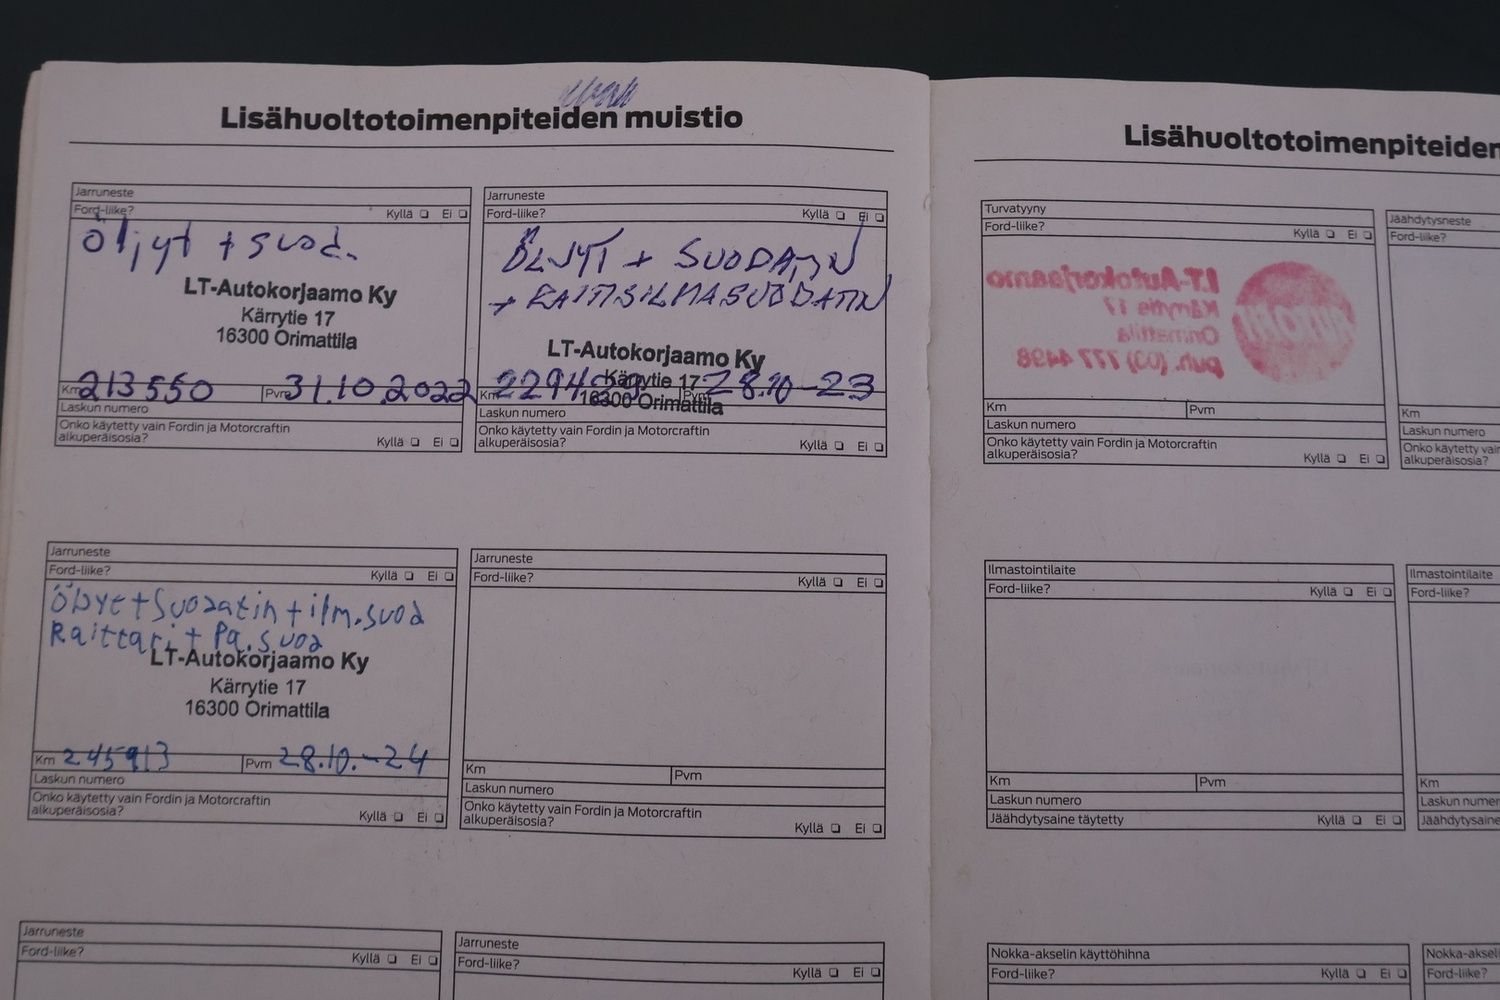 Lisähuoltotoimenpiteiden muistio
Jarruneste
Ford-liike? Kyllä ❏ Ei ❏
Öljyt + suod.
LT-Autokorjaamo Ky
Kärrytie 17
16300 Orimattila
Km 213550 Pvm 31.10.2022
Laskun numero
Onko käytetty vain Fordin ja Motorcraftin
alkuperäisosia? Kyllä ❏ Ei ❏
Jarruneste
Ford-liike? Kyllä ❏ Ei ❏
ÖLJYT + SUODATIN
+ RAITISILMASUODATIN
LT-Autokorjaamo Ky
Kärrytie 17
16300 Orimattila
Km Pvm 28.10-23
Laskun numero
Onko käytetty vain Fordin ja Motorcraftin
alkuperäisosia? Kyllä ❏ Ei ❏
Jarruneste
Ford-liike? Kyllä ❏ Ei ❏
Öljyt + Suodatin + ilm.suod
Raittari + Pa.suod
LT-Autokorjaamo Ky
Kärrytie 17
16300 Orimattila
Km 245913 Pvm 28.10.-24
Laskun numero
Onko käytetty vain Fordin ja Motorcraftin
alkuperäisosia? Kyllä ❏ Ei ❏
Jarruneste
Ford-liike? Kyllä ❏ Ei ❏
Km Pvm
Laskun numero
Onko käytetty vain Fordin ja Motorcraftin
alkuperäisosia? Kyllä ❏ Ei ❏
Jarruneste
Ford-liike? Kyllä ❏ Ei ❏
Jarruneste
Ford-liike? Kyllä ❏ Ei ❏
Lisähuoltotoimenpiteiden
Turvatyyny
Ford-liike? Kyllä ❏ Ei ❏
LT-Autokorjaamo
Kärrytie 17
Orimattila
puh. (03) 777 4498
Km Pvm
Laskun numero
Onko käytetty vain Fordin ja Motorcraftin
alkuperäisosia? Kyllä ❏ Ei ❏
Jäähdytysneste
Ford-liike?
Km
Laskun numero
Onko käytetty vain
alkuperäisosia?
Ilmastointilaite
Ford-liike? Kyllä ❏ Ei ❏
Km Pvm
Laskun numero
Jäähdytysaine täytetty Kyllä ❏ Ei ❏
Ilmastointilaite
Ford-liike?
Km
Laskun numer
Jäähdytysaine
Nokka-akselin käyttöhihna
Ford-liike? Kyllä ❏ Ei ❏
Nokka-aksel
Ford-liike?